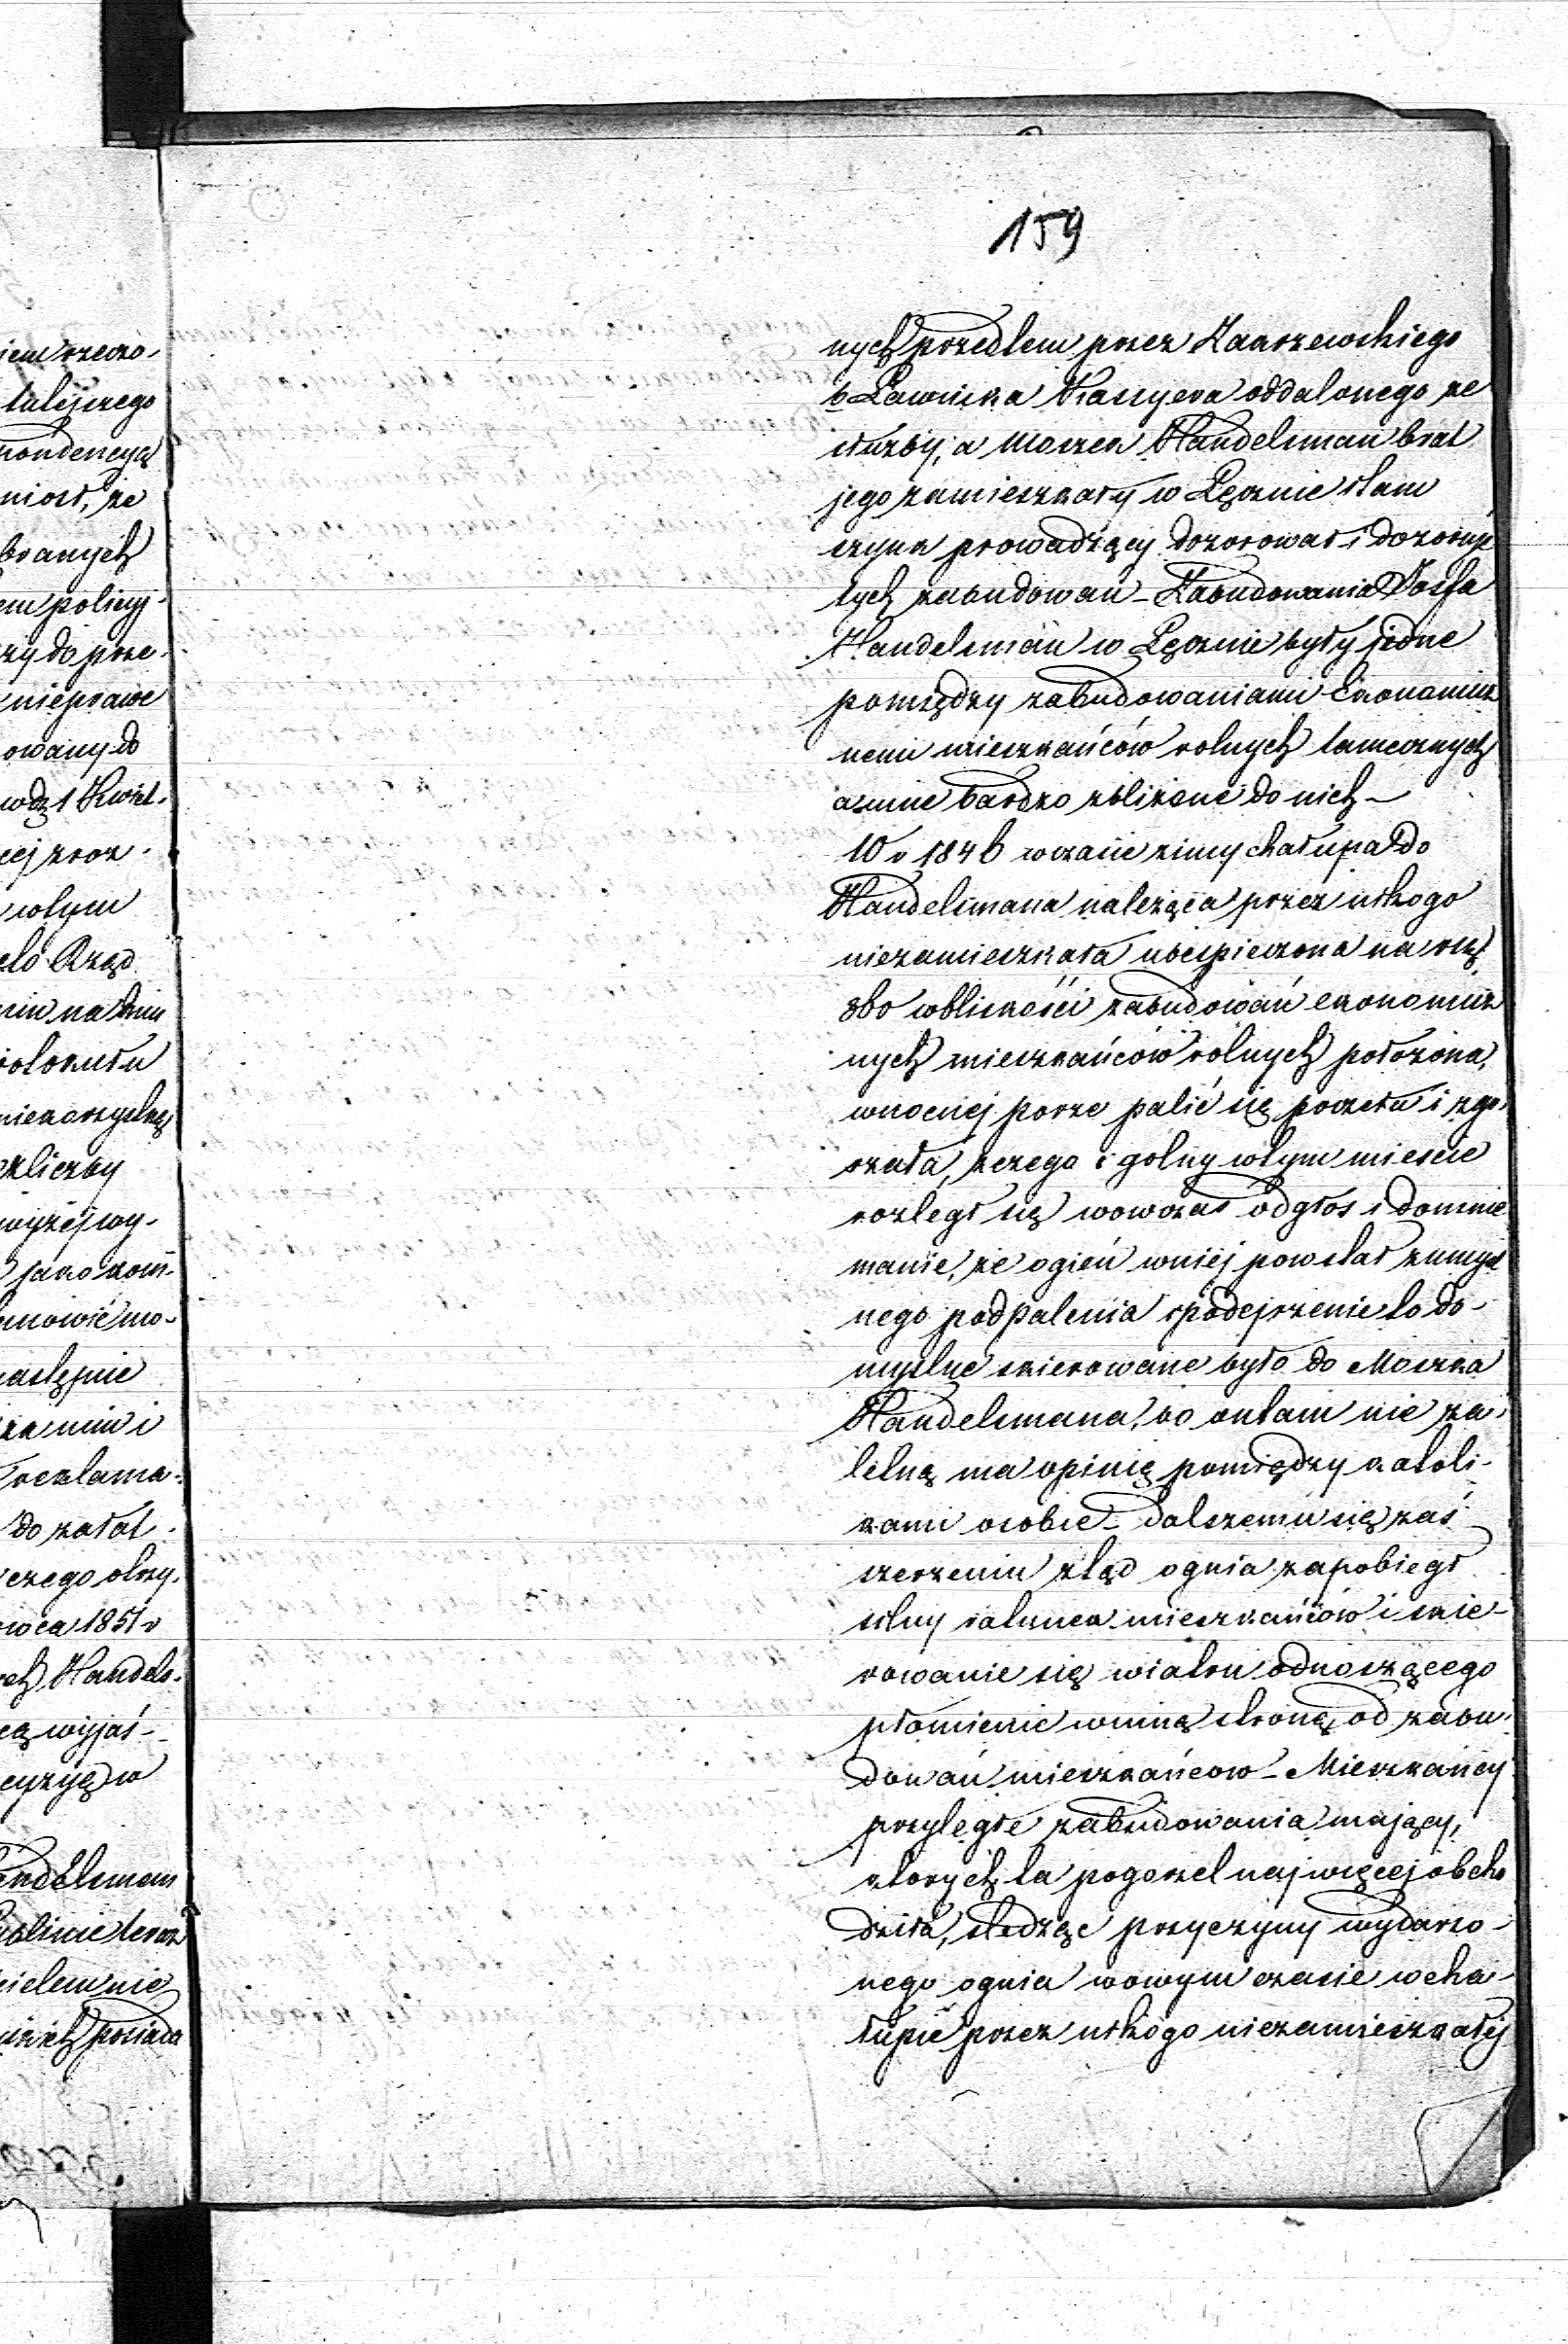 159
nych przedtem przez Kaarszewskiego
b Ławnika Kassyera oddalonego ze
służby, a Moszek Handelsman brat
jego zamieszkały w Łęcznie i tam
szynk prowadzący dozorował i dozoruje
tych zabudowań – Zabudowania Josfa
Handelsman w Łęcznie były jedne
pomiędzy zabudowaniami Ekonomicz
nemi mieszkańców rolnych tamecznych
a inne bardzo zbliżone do nich –
W r 1846 w czasie zimy chałupa do
Handelsmana należąca przez nikogo
niezamieszkała ubespieczona na rs
w bliskości zabudowań ekonomicz
nych mieszkańców rolnych położona,
wnocnej porze palić się poczeła i zgo-
rzała, zczego i golny wtym mieście
rozległ się wowczas odgłos i domnie
manie, że ogień wniej powstał z umyśl
nego podpalenia i podejrzenie to do-
myslne skierowane było do Moszka
Handelsmana, bo on tam nie za-
letną ma opinię pomiędzy katoli-
kami o sobie – dalszemu się zaś
szerzeniu ztąd ognia zapobiegł
silny ratunek mieszkańców i skie-
rowanie się wiatru odnoszącego
płomienie winną stronę od zabu-
dowań mieszkańcow – Mieszkańcy
przyległe zabudowania mający,
ktorych ta pogorzel najwięcej obcho
dziła, śledząc przyczyny wydarzo-
nego ognia wowym czasie w cha-
łupie przez nikogo niezamieszkałej
iem rzeczo-
tutejszego
pondencyą
niosł, że
branych
em policyj-
zy do prze-
nieprawe
owany do
wdz 1 Kwiet-
cej zroz-
wtym
Rząd
protokułu
niekorzystną
zliczby
wyżej wy-
jako kom-
nowić mo-
następnie
za nim i
reklama-
do załat-
czego otrzy-
wca 1851 r
ch Handels-
cą wyjaś-
cyzyą w
andelsmann
ublinie teraz
cielem nie
posiada